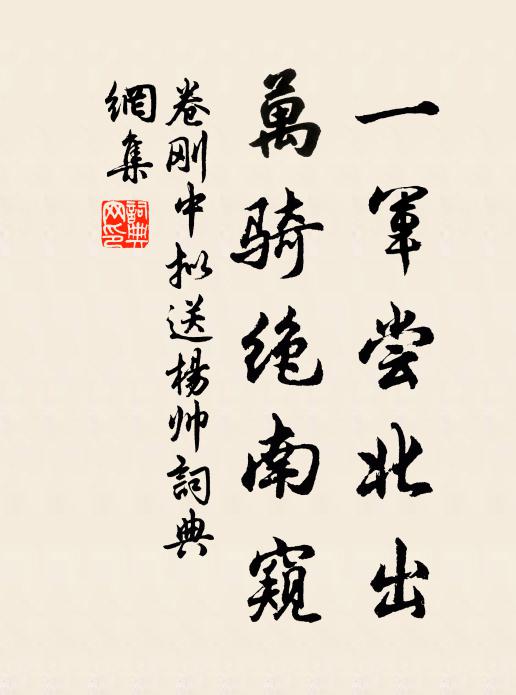 一军尝北出
萬骑绝南窥
卷刚中拟送楊帅詞典
網集
詞典网印